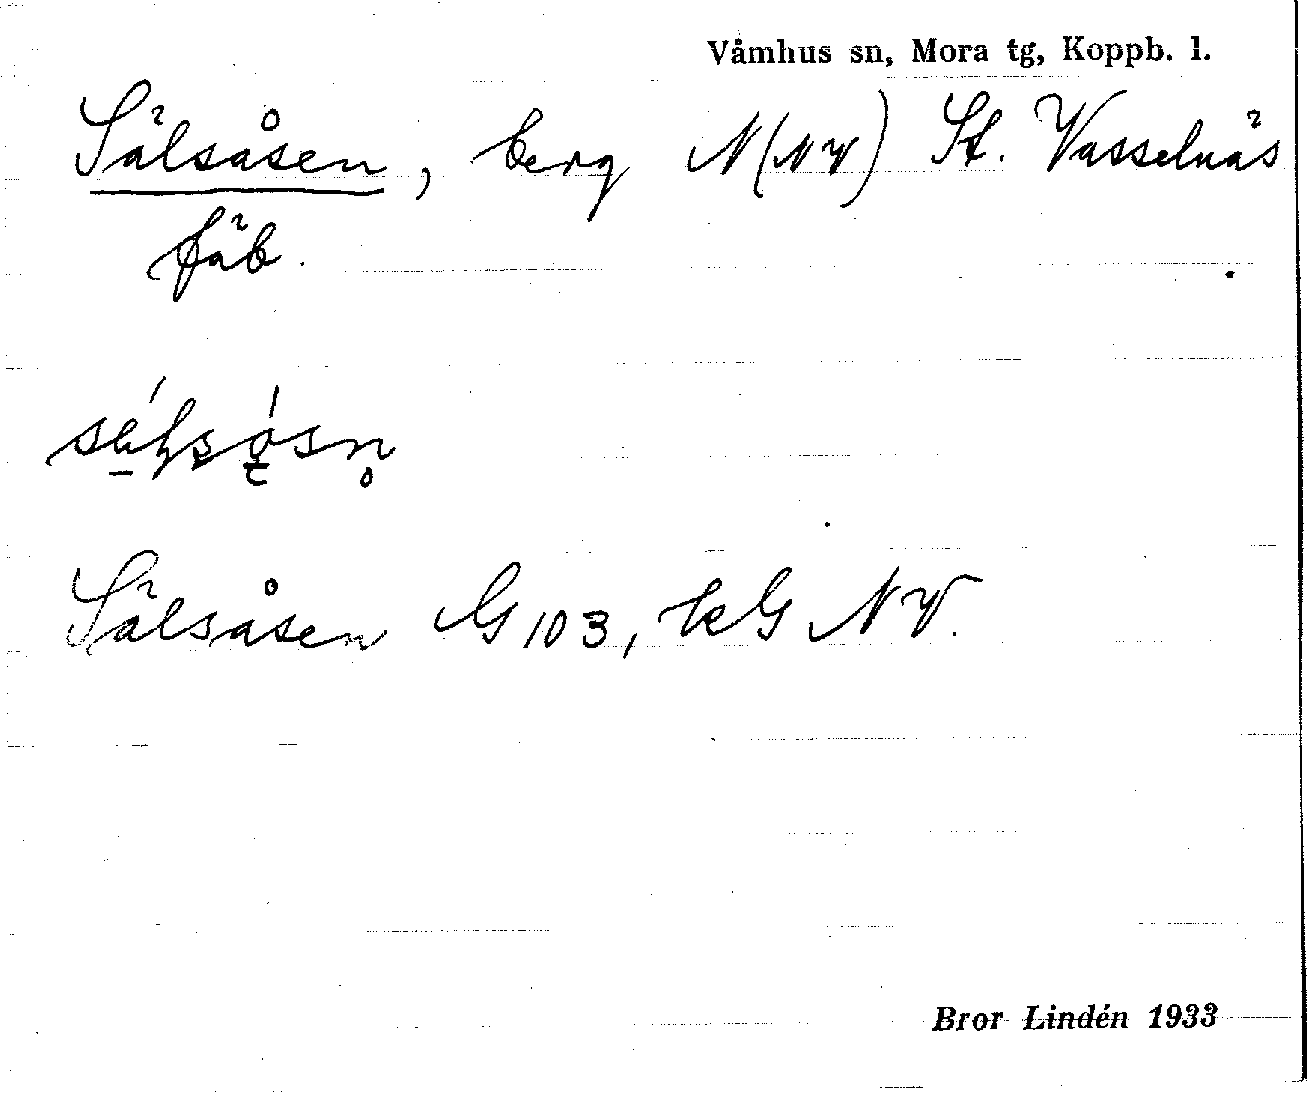 Våmhus sn, Mora tg, Koppb. l.
Sälsåsen, berg N(NV) St. Vasselnäs
fäb.
Sälsåsen G 103, kG NV.
Bror Lindén 1933